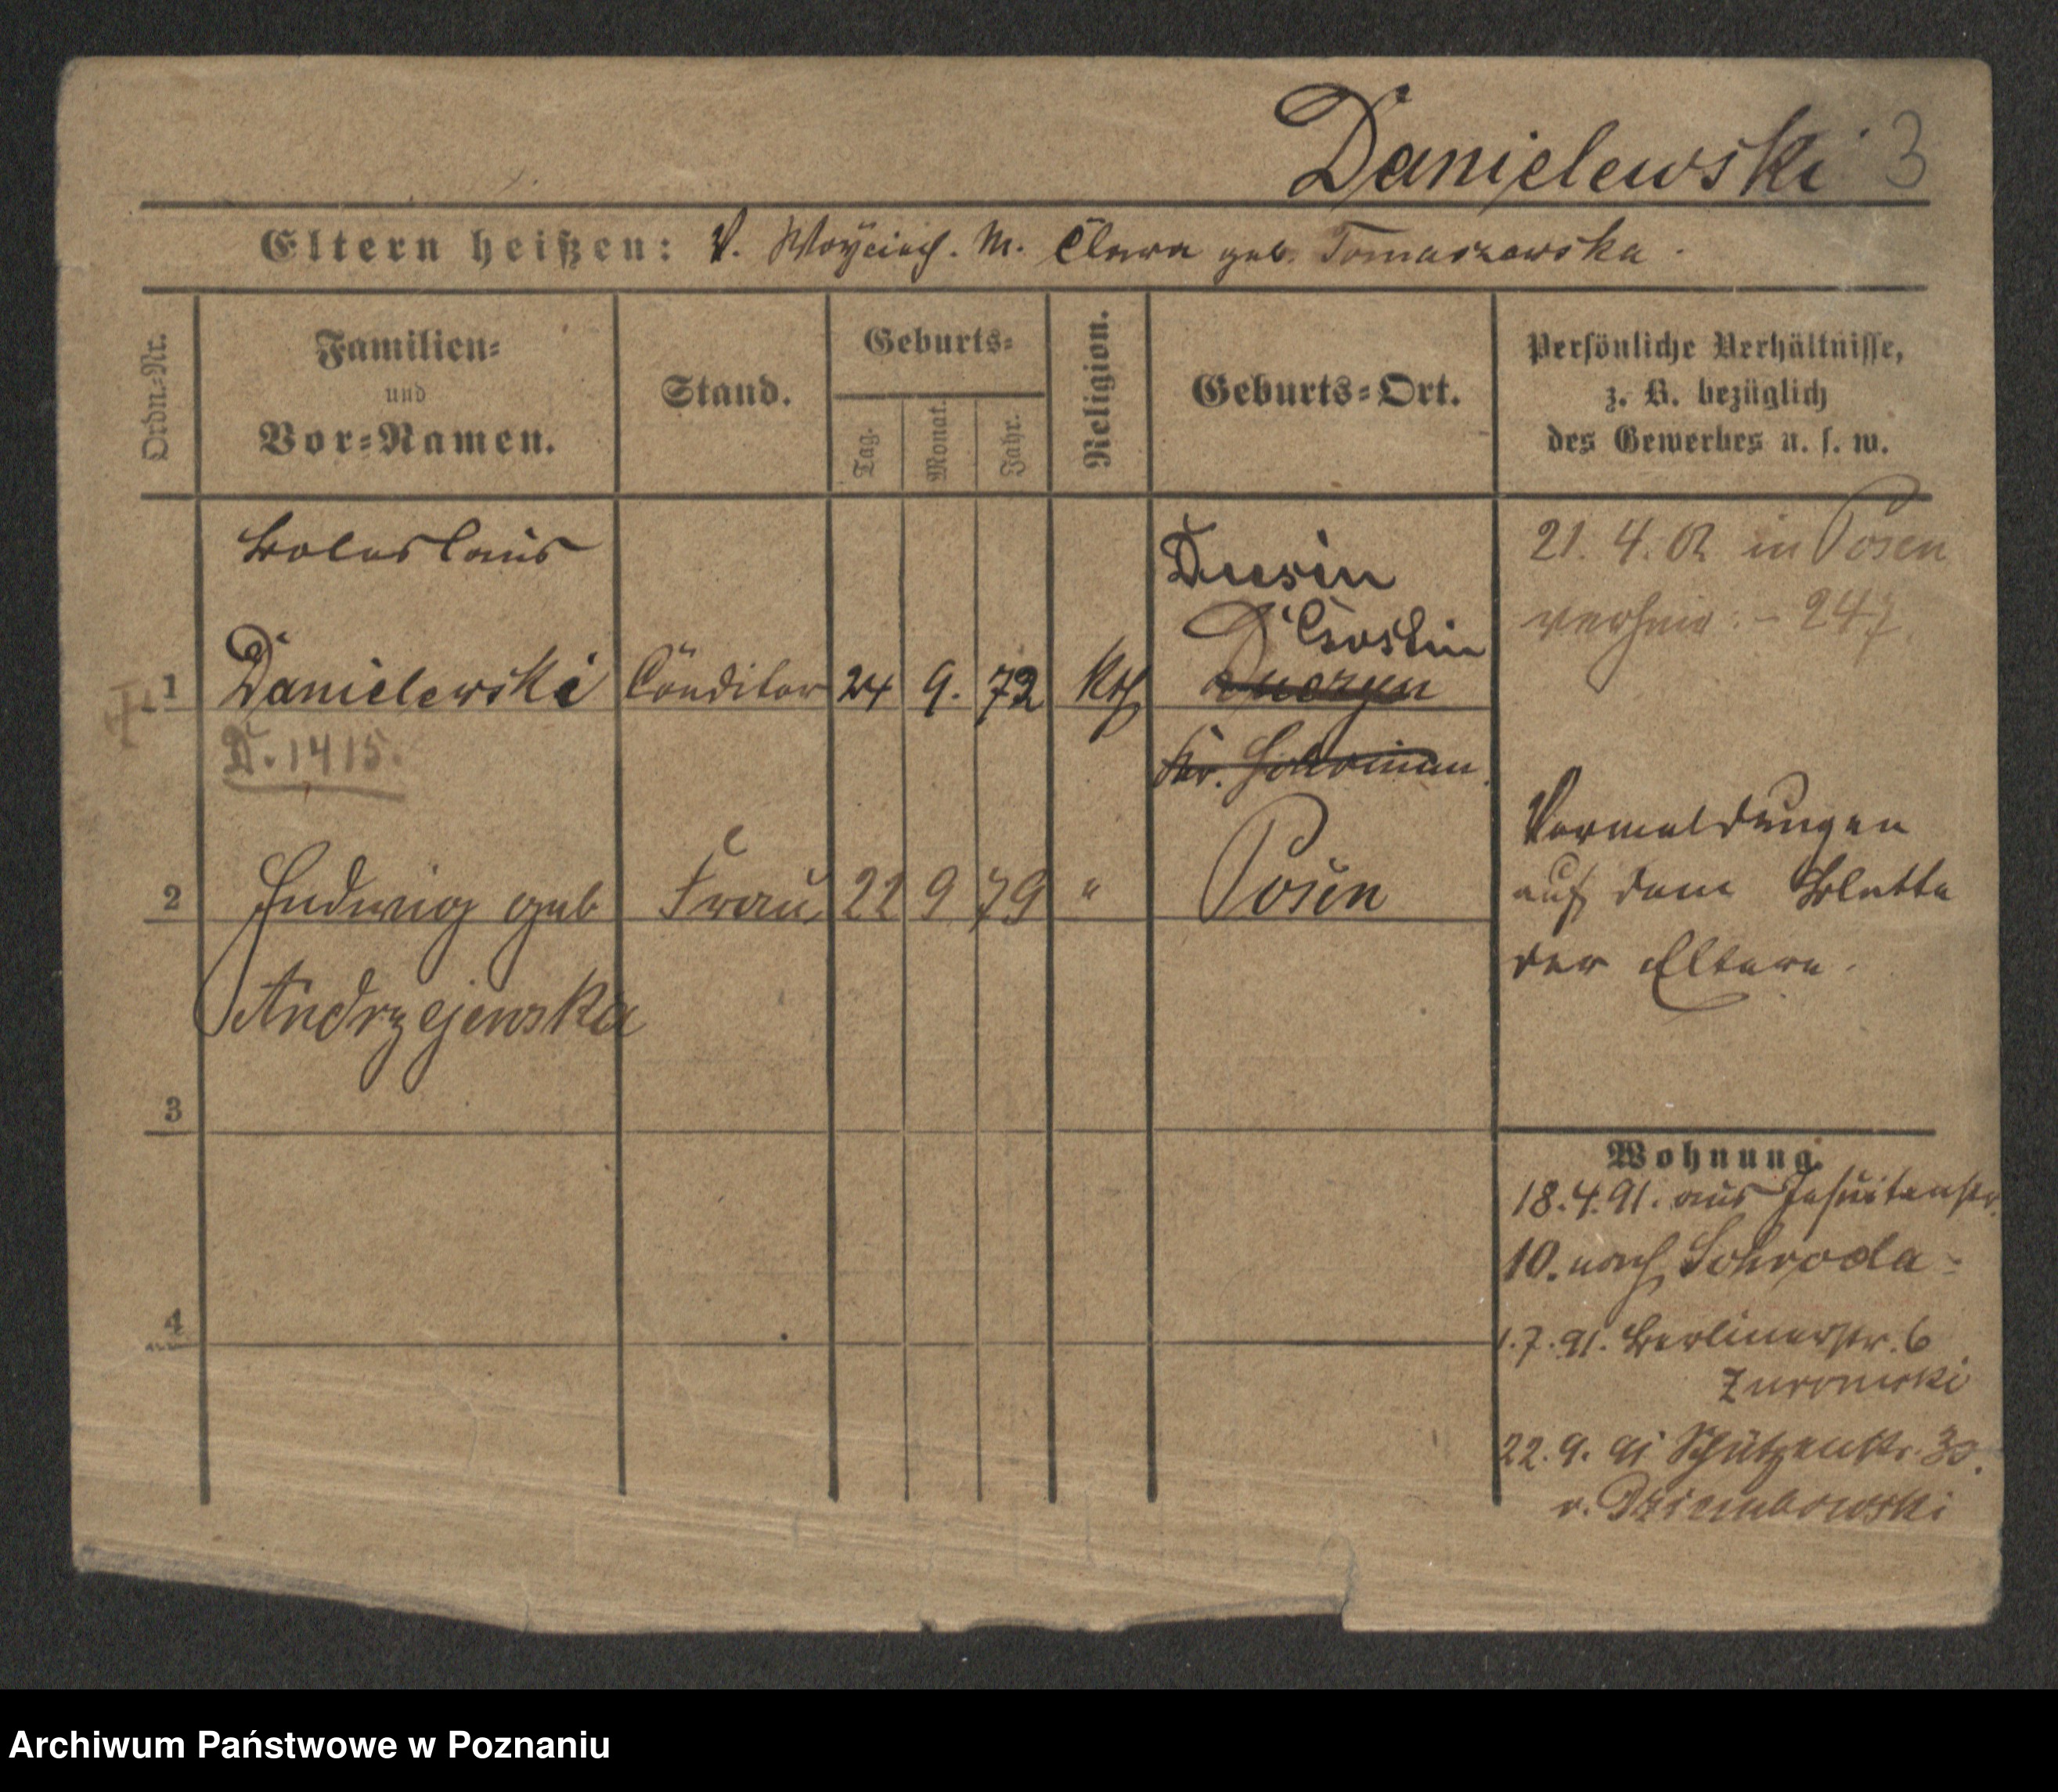 Danielewski 3
Eltern heißen: V. Woyciech. M. Clara geb. Tomaszewska.
Ordn.-Nr.
Familien-
und
Vor-Namen.
Stand.
Geburts-
Tag.
Monat.
Jahr.
Religion.
Geburts-Ort.
Persönliche Verhältnisse,
z. B. bezüglich
des Gewerbes u. s. w.
Boleslaus
Dusin
21. 4. 02 in Posen
verheir. - 247.
Gostin
1 Danielewski Conditor 24 9. 72 Kth
D. 1415.
Kr.
Vermeldungen
auf dem Blatte
der Eltern.
2 Hedwig geb Frau 22 9 79 " Posen
Andrzejewska
3
4
Wohnung.
18. 4. 91. aus Jesuitenstr.
10. nach Schroda -
1. 7. 91. Berlinerstr. 6
Zuromski
22. 9. 91 Schützenstr.
v. Dziembowski
Archiwum Państwowe w Poznaniu